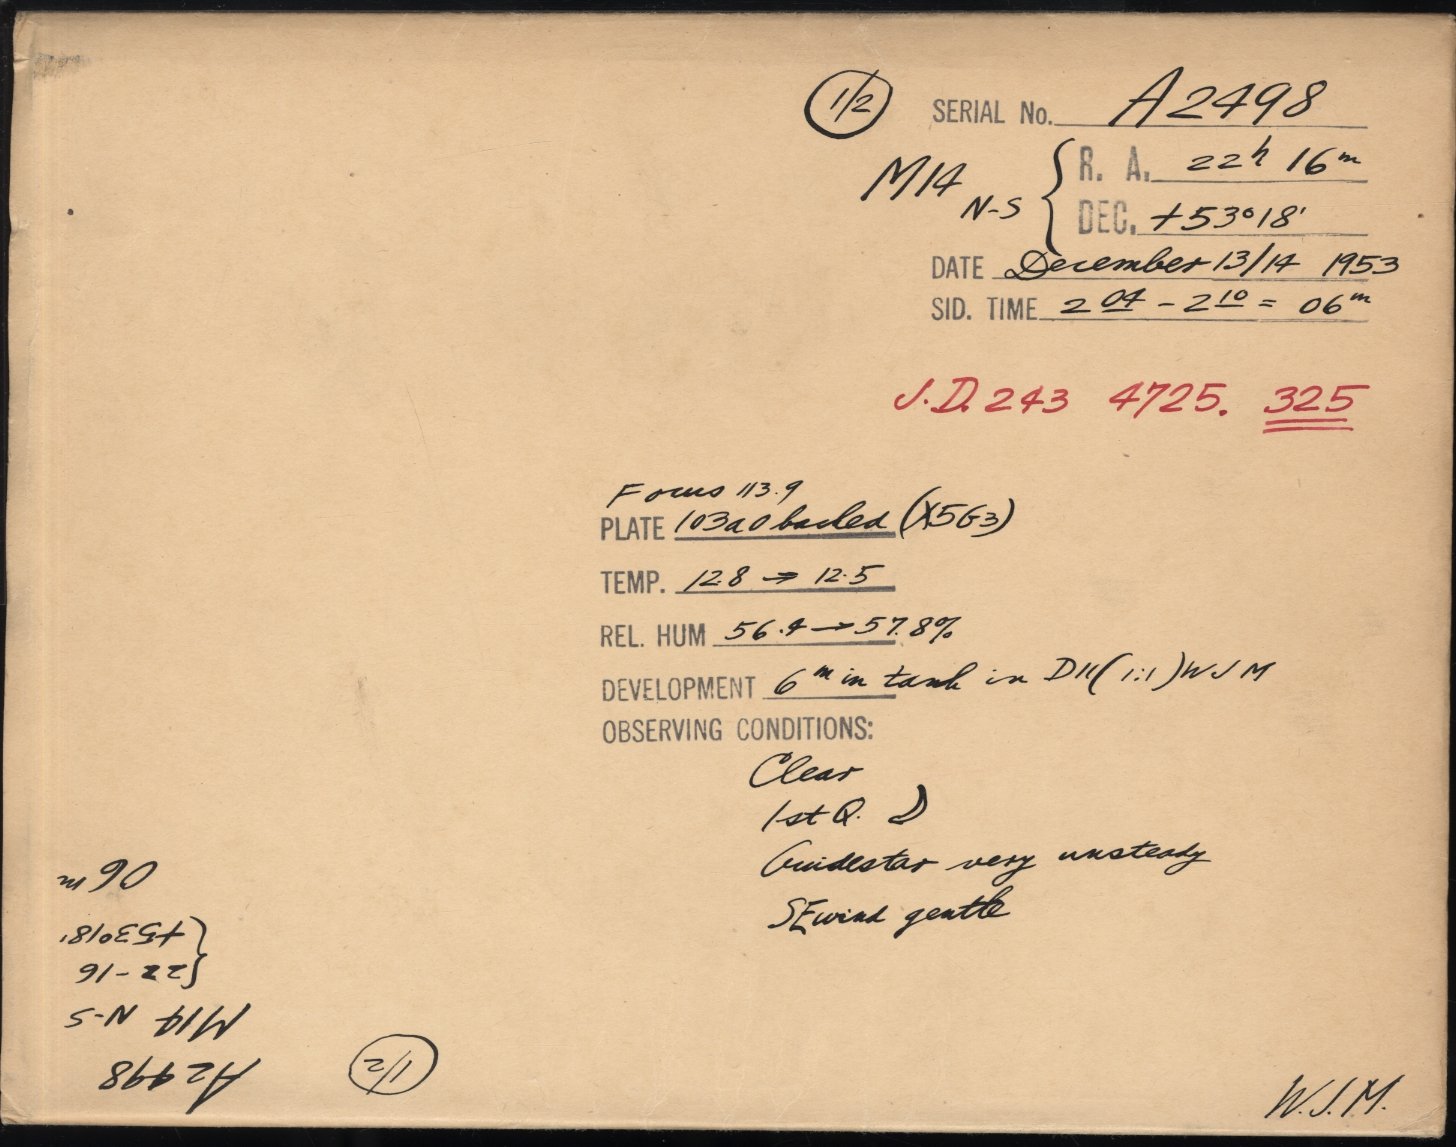 1/2 SERIAL No. A2498
M14 N-S { R. A. 22h 16m
DEC. +53°18'
DATE December 13/14 1953
SID. TIME 2 04 - 2 10 = 06m
J.D. 243 4725. 325
Focus 113.9
PLATE 103aO backed (X5G3)
TEMP. 12.8 → 12.5
REL. HUM 56.4 → 57.8%
DEVELOPMENT 6m in tank in D11 (1:1) WJM
OBSERVING CONDITIONS:
Clear
1st Q. ☽
Guidestar very unsteady
SE wind gentle
W.J.M.
1/2
A2498
M14 N-S
{ 22-16
+53°18'
06m